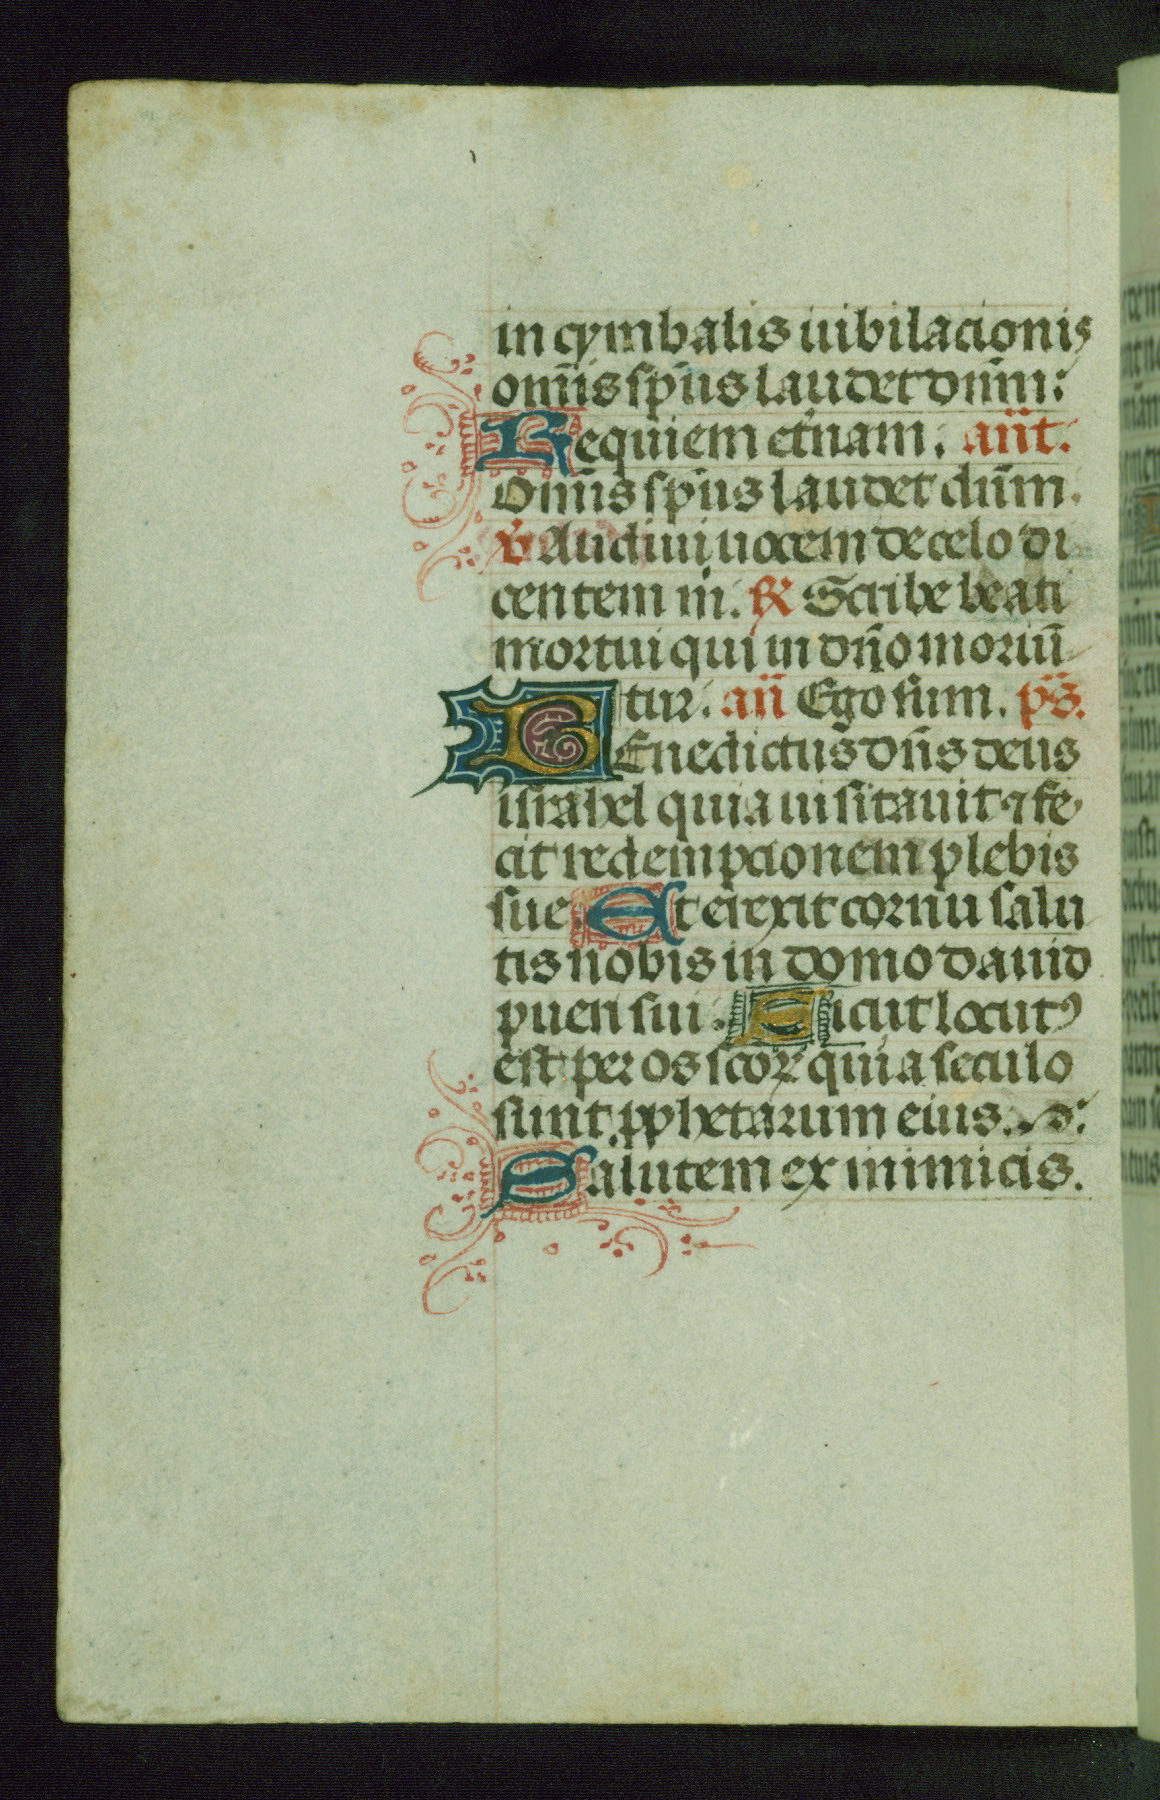 in cymbalis iubilacionis
om̄is sp̄us laudet dn̄m:
Requiem et̉nam. an̄t.
Omīs sp̄us laudet dn̄m.
℣ Audiui uocem de celo di
centem m̄. ℟ Scribe beati
mortui qui in dn̄o moriū
tur. an̄ Ego sum. ps̄.
BEnedictus dn̄s deus
israhel quia uisitauit ⁊ fe
cit redempcionem plebis
sue Et erexit cornu salu
tis nobis in domo dauid
pueri sui. Sicut locutꝰ
est per os scoꝝ qui a seculo
sunt ꝓphetarum eius.
Salutem ex inimicis.